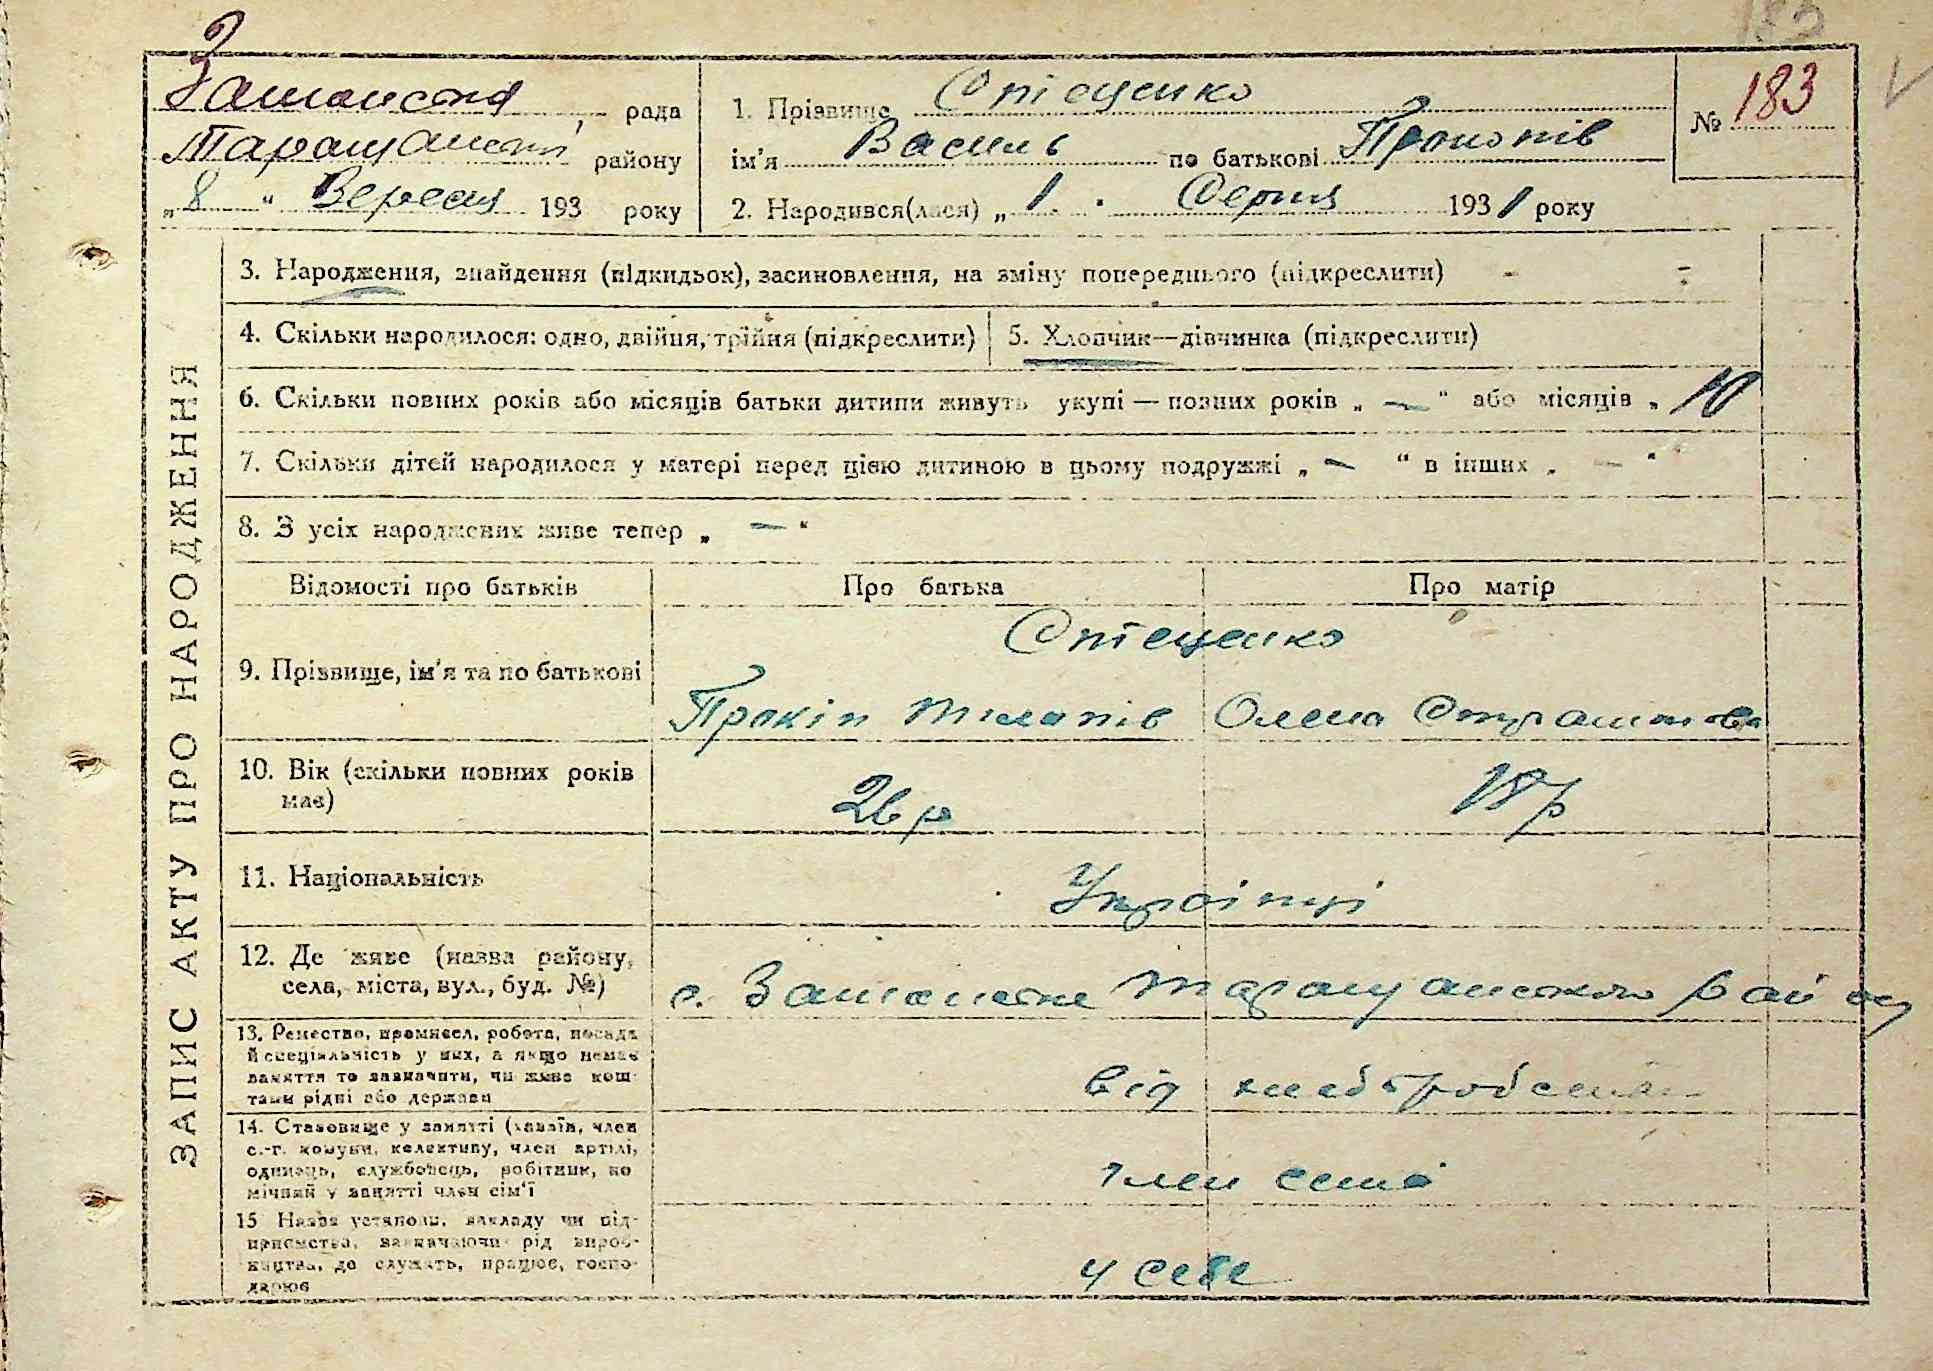 183
рада
1. Прізвище
№ 183
Таращанськ району
ім'я Василь по батькові Прокопів
„ 8 “ Вересня 193 року
2. Народився(лася) „ 1 . Серпня 1931 року
ЗАПИС АКТУ ПРО НАРОДЖЕННЯ
3. Народження, знайдення (підкидьок), засиновлення, на зміну попереднього (підкреслити) -
4. Скільки народилося: одно, двійня, трійня (підкреслити)
5. Хлопчик—дівчинка (підкреслити)
6. Скільки повних років або місяців батьки дитини живуть укупі — повних років „ — “ або місяців „ 10
7. Скільки дітей народилося у матері перед цією дитиною в цьому подружжі „ — “ в інших „ — “
8. З усіх народжених живе тепер „ — “
Відомості про батьків
Про батька
Про матір
9. Прізвище, ім'я та по батькові
Прокіп
Олена
10. Вік (скільки повних років
має)
26 р
18 р
11. Національність
Українці
12. Де живе (назва району,
села, міста, вул., буд. №)
с. Таращанського району
13. Ремество, промисел, робота, посада
й спеціальність у них, а якщо немає
заняття то зазначити, чи живе кош-
тами рідні або держави
від хлеборобства
14. Становище у занятті (хазяїн, член
с.-г. комуни, колективу, член артілі,
одинець, службовець, робітник, по
мічний у занятті член сім'ї
член семі
15 Назва установи, закладу чи під-
приємства, зазначаючи рід вироб-
ництва, де служить, працює, госпо-
дарює
у себе